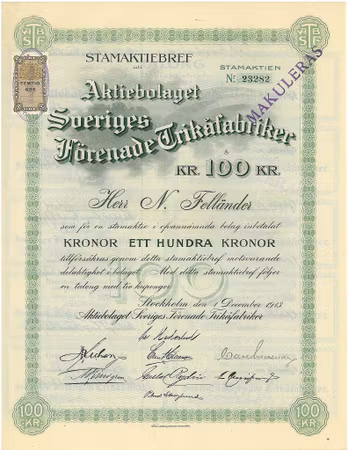 STAMAKTIEBREF
till
STAMAKTIEN
Nº 23282
MAKULERAS
Aktiebolaget
Sveriges
Förenade Trikåfabriker
å
KR. 100 KR.
Herr N. Felländer
som för en stamaktie i ofvannämnda bolag inbetalat
KRONOR ETT HUNDRA KRONOR
tillförsäkras genom detta stamaktiebref motsvarande
delaktighet i bolaget. Med detta stamaktiebref följer
en talong med tio kuponger.
Stockholm den 1 December 1913
Aktiebolaget Sveriges Förenade Trikåfabriker
100 KR
100 KR